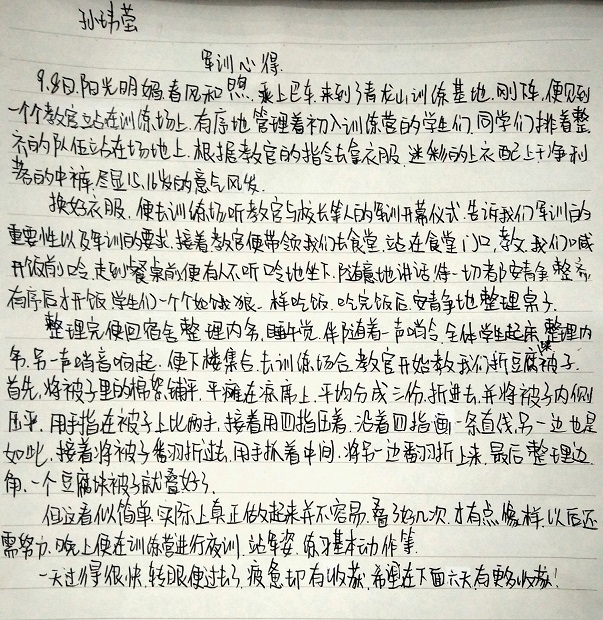 孙玮莹
军训心得
9.8日,阳光明媚,春风和煦.乘上巴车,来到了青龙山训练基地.刚下车,便见到
一个个教官站在训练场上.有序地管理着初入训练营的学生们.同学们排着整
齐的队伍站在场地上.根据教官的指令去拿衣服.迷彩的上衣配上干净利
落的中裤,尽显15,16岁的意气风发.
换好衣服,便去训练场听教官与校长等人的军训开幕仪式.告诉我们军训的
重要性以及军训的要求.接着教官便带领我们去食堂.站在食堂门口,教我们喊
开饭前口令,走到餐桌前便有人不听口令地坐下,随意地讲话.待一切都安静,整齐,
有序后才开饭,学生们一个个如饿狼一样吃饭.吃完饭后,安静地整理桌子.
整理完便回宿舍整理内务,睡午觉.伴随着一声哨令,全体学生起床,整理内
务,另一声哨音响起,便下楼集合,去训练场合,教官开始教我们折豆腐被子.
首先,将被子里的棉絮铺平,平摊在凉席上.平均分成三份,折进去,并将被子内侧
压平,用手指在被子上比两手,接着用四指压着,沿着四指画一条直线,另一边也是
如此,接着将被子番羽折过去,用手抓着中间,将另一边番羽折上来.最后整理边
角,一个豆腐块被子就叠好了.
但这看似简单,实际上真正做起来并不容易,叠了好几次,才有点像样,以后还
需努力.晚上便在训练营进行夜训,站军姿,练习基本动作等.
一天过得很快,转眼便过去了,疲惫却有收获,希望在下面六天有更多收获!